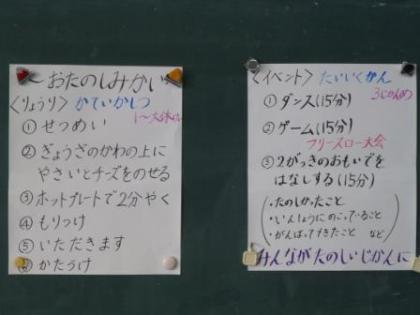 ～おたのしみかい～
〈りょうり〉 かていかしつ
①せつめい
②ぎょうざのかわの上に
やさいとチーズをのせる
③ホットプレートで2分やく
④もりつけ
⑤いただきます
⑥かたづけ
〈イベント〉 たいいくかん
3じかんめ
①ダンス(15分)
②ゲーム(15分)
フリースロー大会
③2がっきのおもいでを
はなしする(15分)
・たのしかったこと
・いんしょうにのこっていること
・がんばってきたこと など
みんながたのしいじかんに